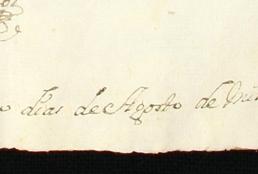 o dias de Agosto de